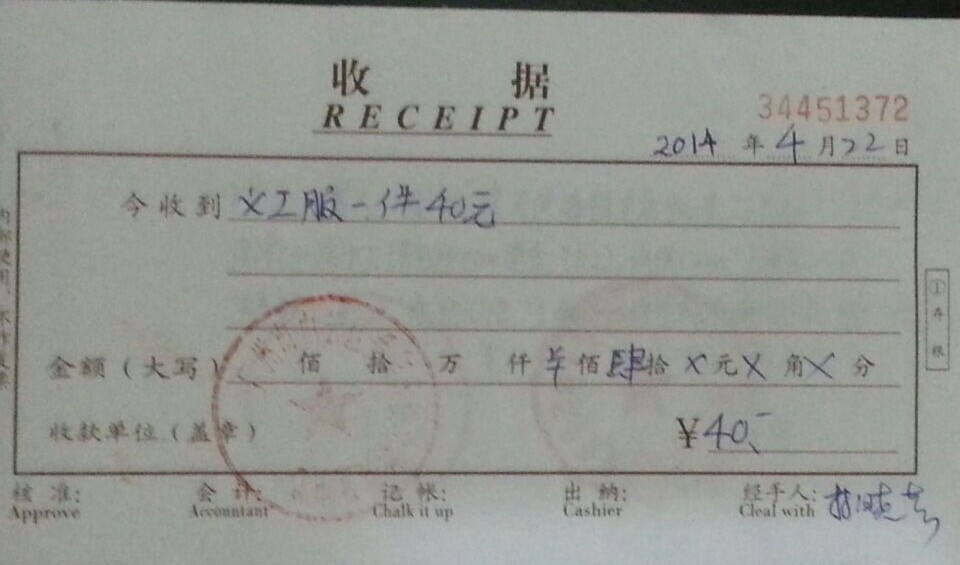 收 据
RECEIPT
34451372
2014 年 4 月 22 日
今收到 工服一件40元
金额(大写) 佰 拾 万 仟 ¥ 佰 肆 拾 X 元 X 角 X 分
收款单位(盖章) ¥40.-
①存根
核准: 会计: 记帐: 出纳: 经手人:
Approve Accountant Chalk it up Cashier Cleal with